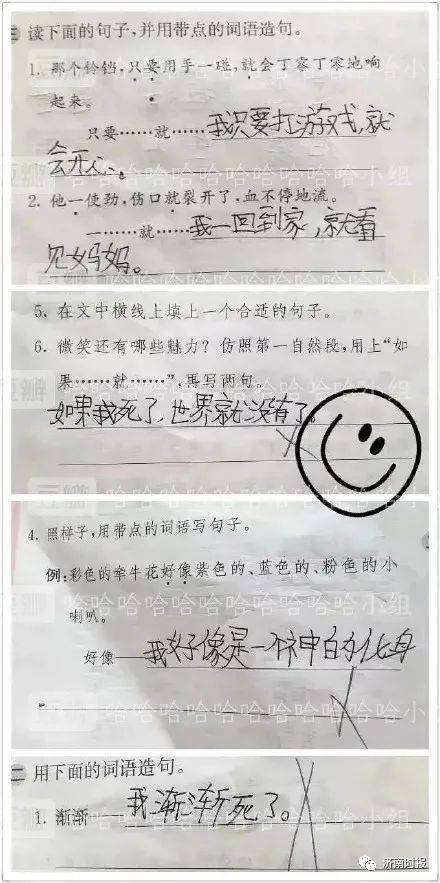 三 读下面的句子，并用带点的词语造句。
1. 那个铃铛，只要用手一碰，就会丁零丁零地响
起来。
只要……就……我只要打游戏，就
会开心。
2. 他一使劲，伤口就裂开了，血不停地流。
一……就……我一回到家，就看
见妈妈。
5. 在文中横线上填上一个合适的句子。
6. 微笑还有哪些魅力？仿照第一自然段，用上“如
果……就……”，再写两句。
如果我死了，世界就没有了。
4. 照样子，用带点的词语写句子。
例：彩色的牵牛花好像紫色的、蓝色的、粉色的小
喇叭。
好像——我好像是一个神的化身
二 用下面的词语造句。
1. 渐渐 我渐渐死了。
豆瓣 哈哈哈哈哈哈哈哈哈小组
济南时报